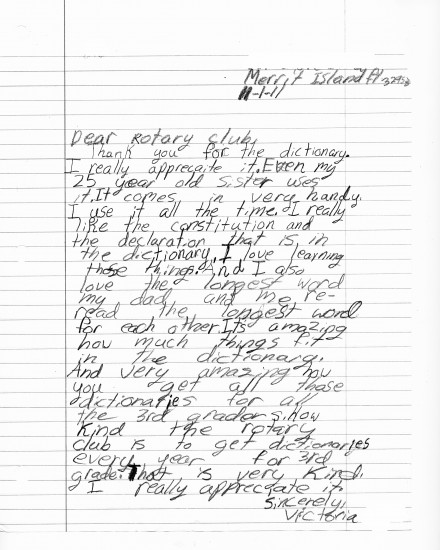 Merrit Island fl 32953
11-1-11
Dear Rotary Club,
Thank you for the dictionary.
I really apprecaite it. Even my
25 year old sister uses
it. It comes in very handy.
I use it all the time. I really
like the constitution and
the declarator that is in
the dictionary, I love learning
those things. And I also
love the longest word
my dad and me re-
read the longest word
for each other. Its amazing
how much things fit
in the dictionary.
And very amazing how
you get all those
dictionaries for all
the 3rd graders. how
kind the rotary
club is to get dictionaries
every year for 3rd
grade. That is very kind.
I really apprecate it.
Sincerely,
Victoria